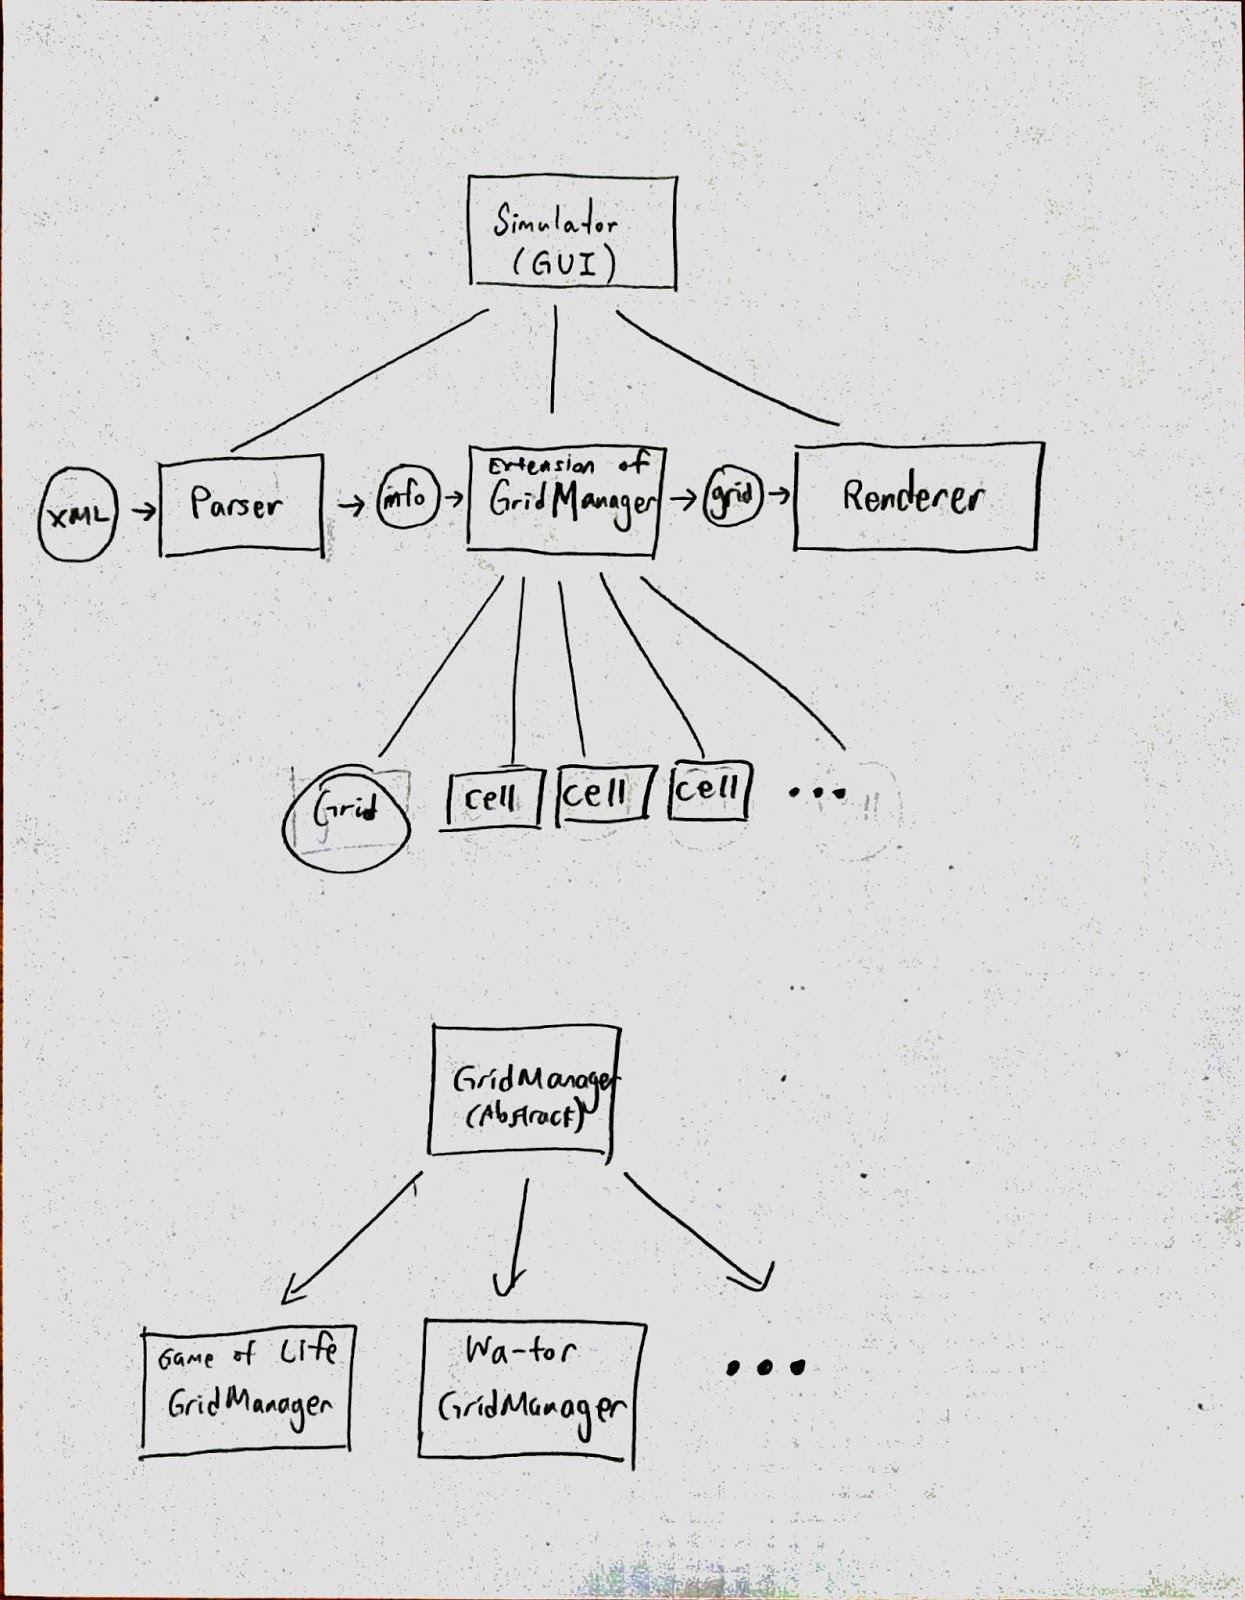 Simulator
(GUI)
XML
Parser
info
Extension of
GridManager
grid
Renderer
Grid
cell
cell
cell
...
GridManager
(Abstract)
Game of Life
GridManager
Wa-tor
GridManager
...